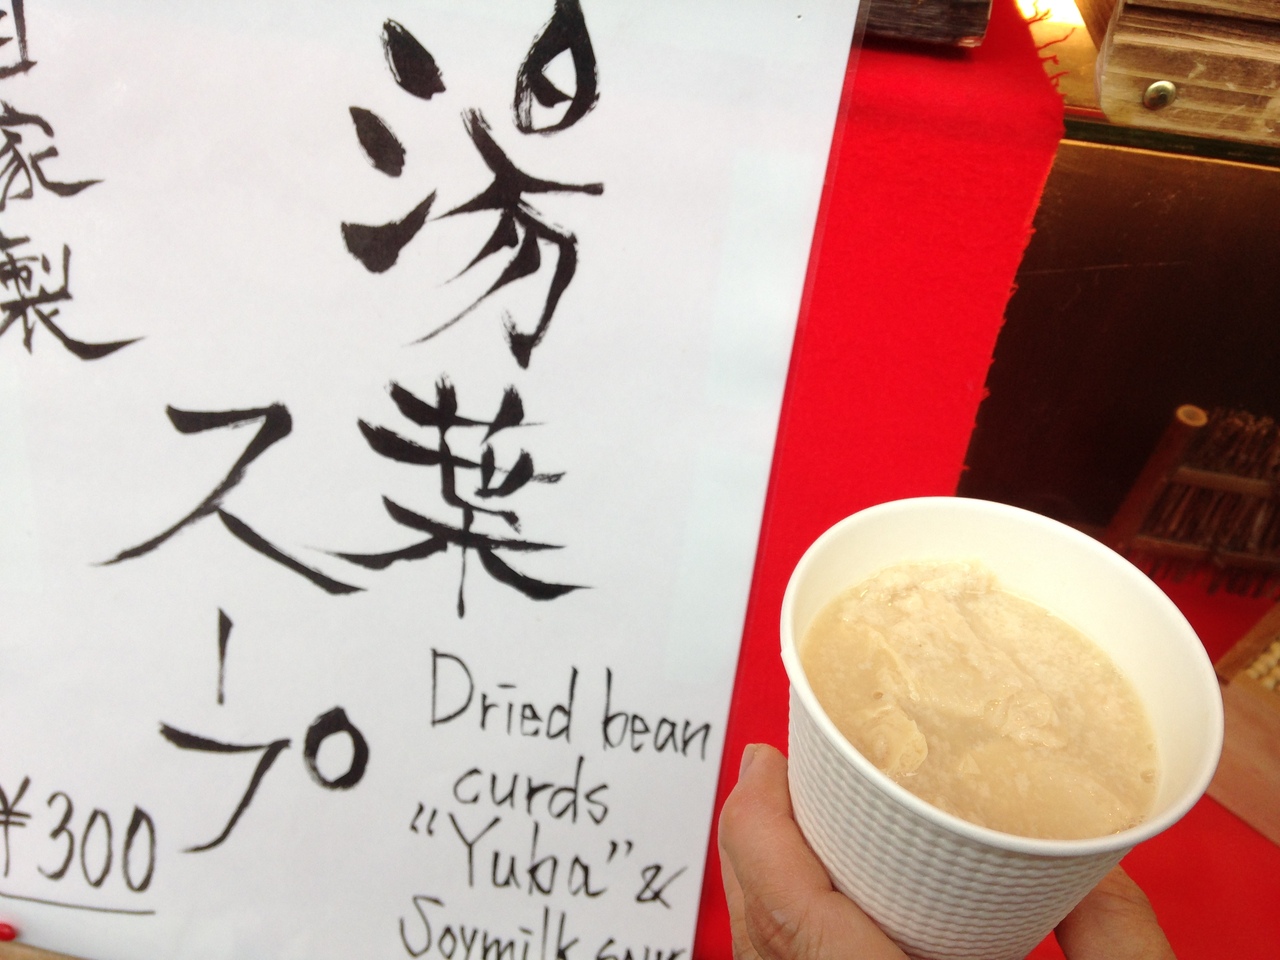 湯葉
スープ
自家製
¥300
Dried bean
curds
"Yuba" &
Soymilk soup